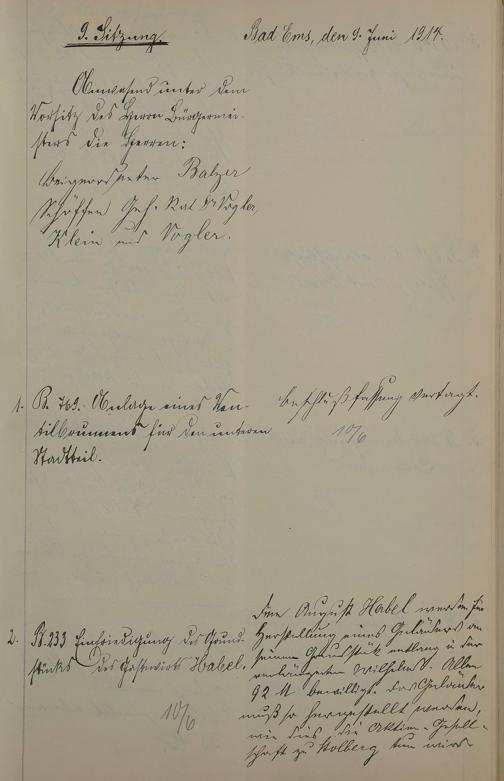 9. Sitzung. Bad Ems, den 9. Juni 1914.
Anwesend unter dem
Vorsitz des Herrn Bürgermei-
sters die Herren:
Beigeordneter Balzer
Schöffen Geh. Rat Dr Vogler,
Klein und Vogler.
1. B. 769. Anlage eines Ven-
tilbrunnens für den unteren
Stadtteil.
Beschlußfassung vertagt.
10/6
2. B. 233 Einfriedigung des Grund-
stücks des Gastwirts Habel.
10/6
Dem August Habel werden für
Herstellung eines Geländers an
seinem Grundstück entlang in der
verlängerten Wilhelms-Allee
92 M bewilligt. Das Geländer
muß so hergestellt werden,
wie dies die Aktien-Gesell-
schaft zu Stolberg tun wird